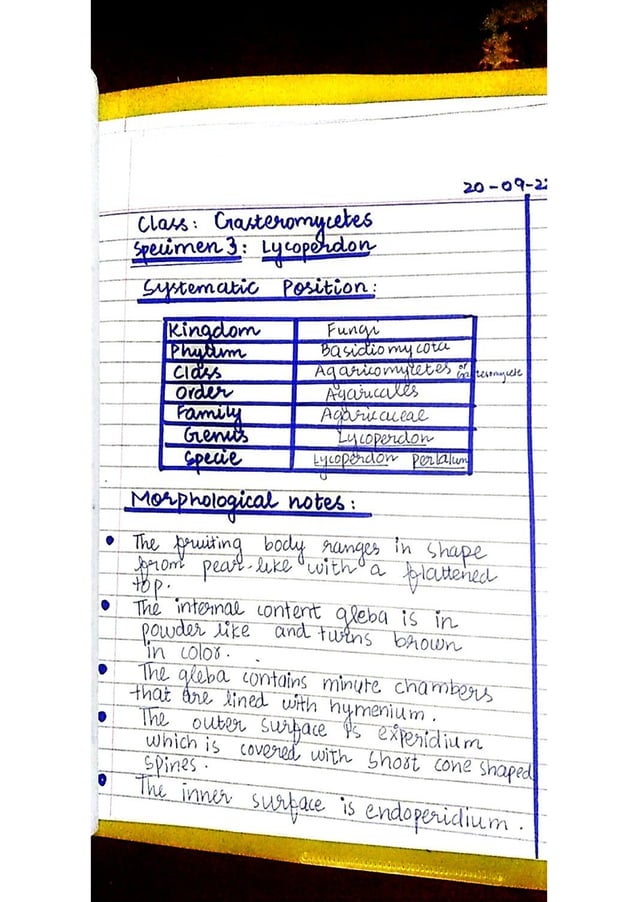 20-09-2
Class: Gasteromycetes
Specimen 3: Lycoperdon
Systematic Position:
Kingdom Fungi
Phylum Basidiomycota
Class Agaricomycetes or Gasteromycete
Order Agaricales
Family Agaricaceae
Genus Lycoperdon
Specie Lycoperdon perlatum
Morphological notes:
• The fruiting body ranges in shape
from pear-like with a flattened
top.
• The internal content gleba is in
powder like and turns brown
in color.
• The gleba contains minute chambers
that are lined with hymenium.
• The outer surface is experidium
which is covered with short cone shaped
spines.
• The inner surface is endoperidium.